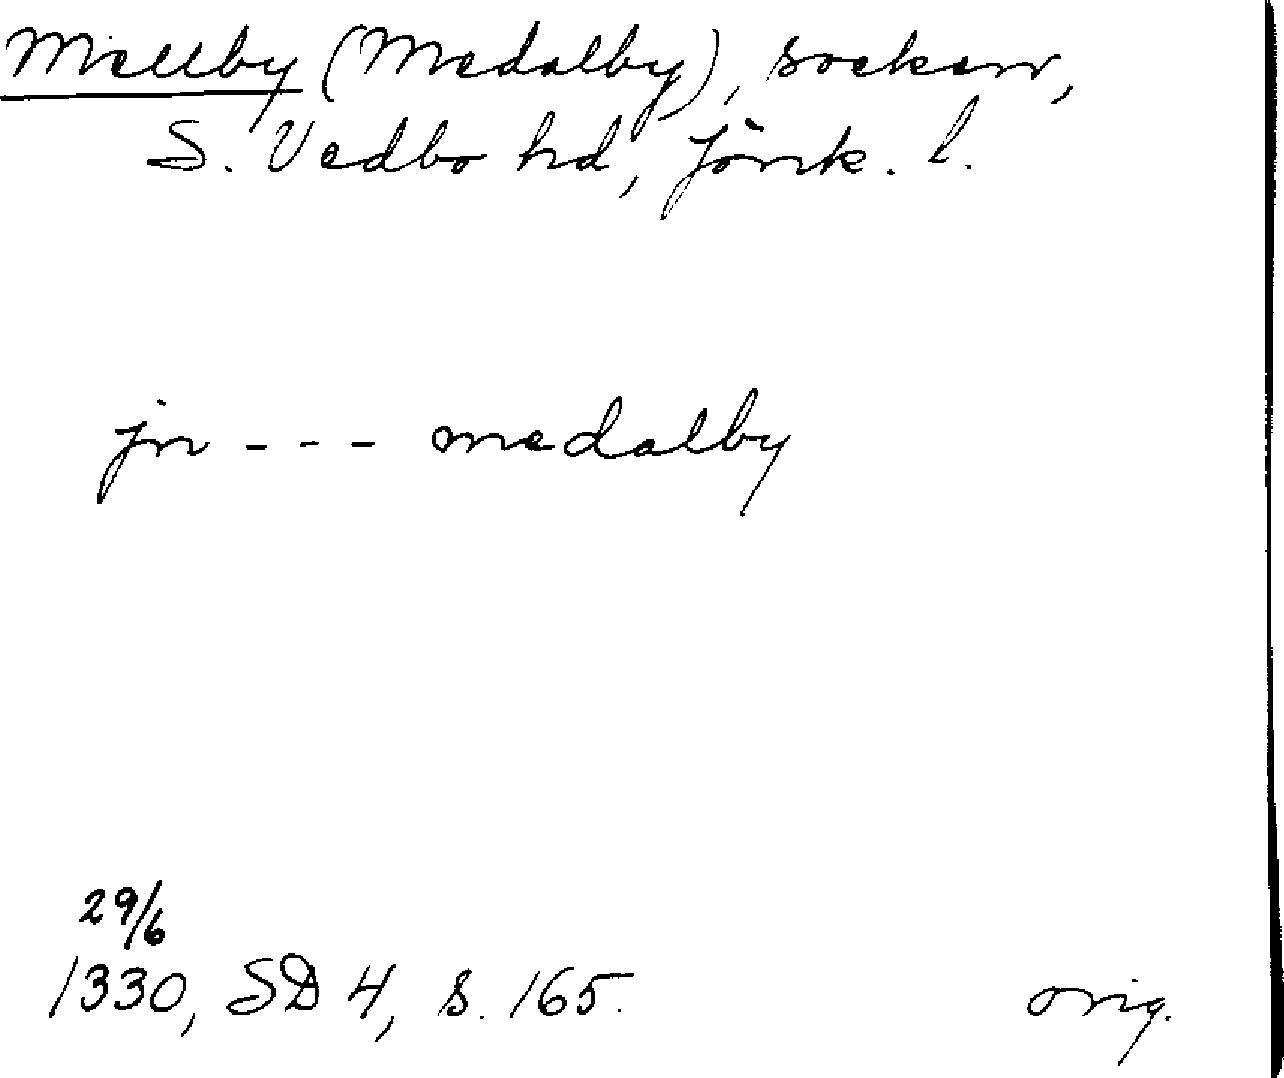 Mellby (Medalby), socken,
S. Vedbo hd, Jönk. l.
jn --- medalby
29/6
1330, SD 4, s. 165.
orig.